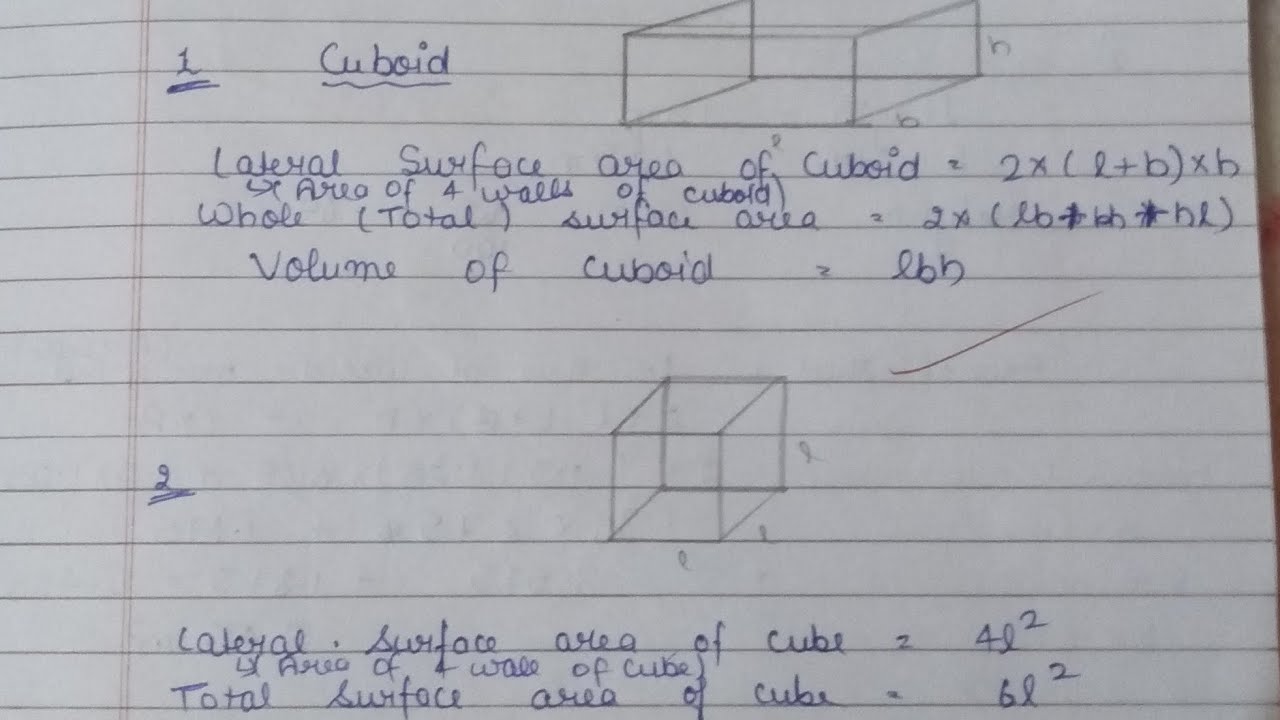 1 Cuboid
h
b
l
Lateral Surface area of Cuboid = 2×(l+b)×h
↳(Area of 4 walls of cuboid)
Whole (Total) surface area = 2×(lb+bh+hl)
Volume of cuboid = lbh
2
l
l
l
Lateral. surface area of cube = 4l²
↳(Area of 4 wall of cube)
Total surface area of cube = 6l²